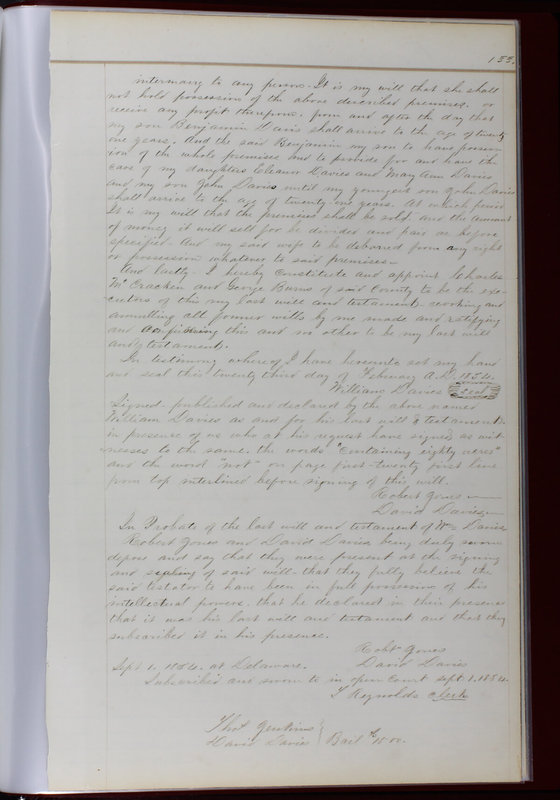 155.
intermarry to any person. It is my will that she shall
not hold possession of the above described premises, or
receive any profit therefrom, from and after the day that
my son Benjamin Davis shall arrive to the age of twenty
one years. And the said Benjamin my son to have possess-
ion of the whole premises and to provide for and have the
care of my daughters Eleanor Davies and Mary Ann Davies
and my son John Davies until my youngest son John Davies
shall arrive to the age of twenty one years. At which period
It is my will that the premises shall be sold, and the amount
of money it will sell for be divided and paid as before
specified. And my said wife to be debarred from any right
or possession whatever to said premises-
And lastly. I hereby Constitute and appoint Charles
Mc Cracken and George Burns of said County to be the exe-
cutors of this my last will and testament. revoking and
annulling all former wills by me made and ratifying
and confirming this and no other to be my last will
and testament.
In testimony whereof I have hereunto set my hand
and seal this twenty third day of February A.D. 1854.
William Davies Seal
Signed. published and declared by the above named
William Davies as and for his last will & testament
in presence of us who at his request have signed as wit-
nesses to the same. the words "containing eighty acres"
and the word "not" on page first-twenty first line
from top interlined before signing of this will.
Robert Jones
David Davies
In Probate of the last will and testament of Wm Davies
Robert Jones and David Davies being duly sworn
depose and say that they were present at the signing
and sealing of said will. that they fully believe the
said testator to have been in full possession of his
intellectual powers. that he declared in their presence
that it was his last will and testament and that they
subscribed it in his presence.
Robt Jones
Sept 1. 1854. at Delaware. David Davies
Subscribed and sworn to in open Court Sept. 1. 1854.
T Reynolds Clerk
Thos Jenkins
David Davies } Bail